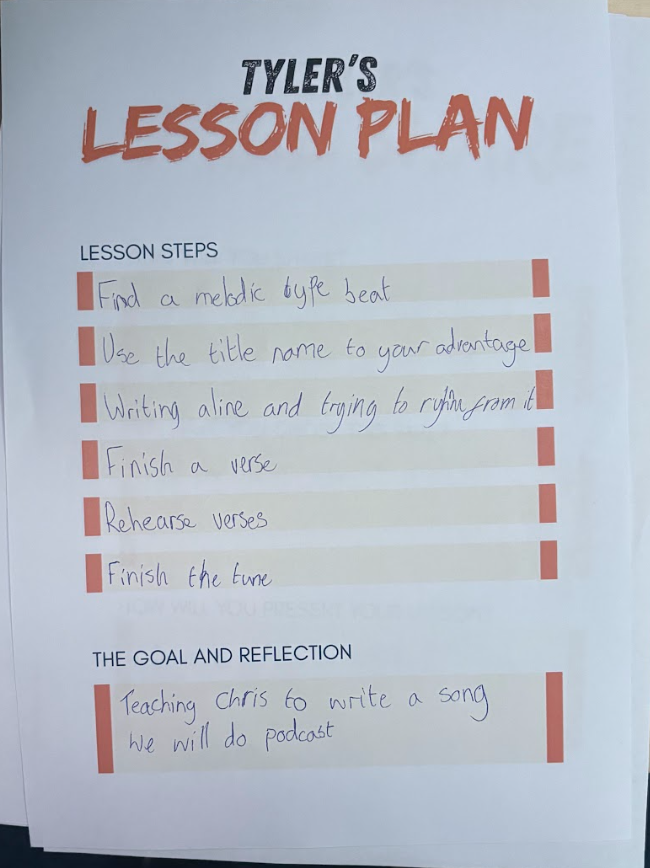 TYLER'S
LESSON PLAN
LESSON STEPS
Find a melodic type beat
Use the title name to your advantage
Writing a line and trying to from it
Finish a verse
Rehearse verses
Finish the tune
THE GOAL AND REFLECTION
Teaching Chris to write a song
We will do podcast